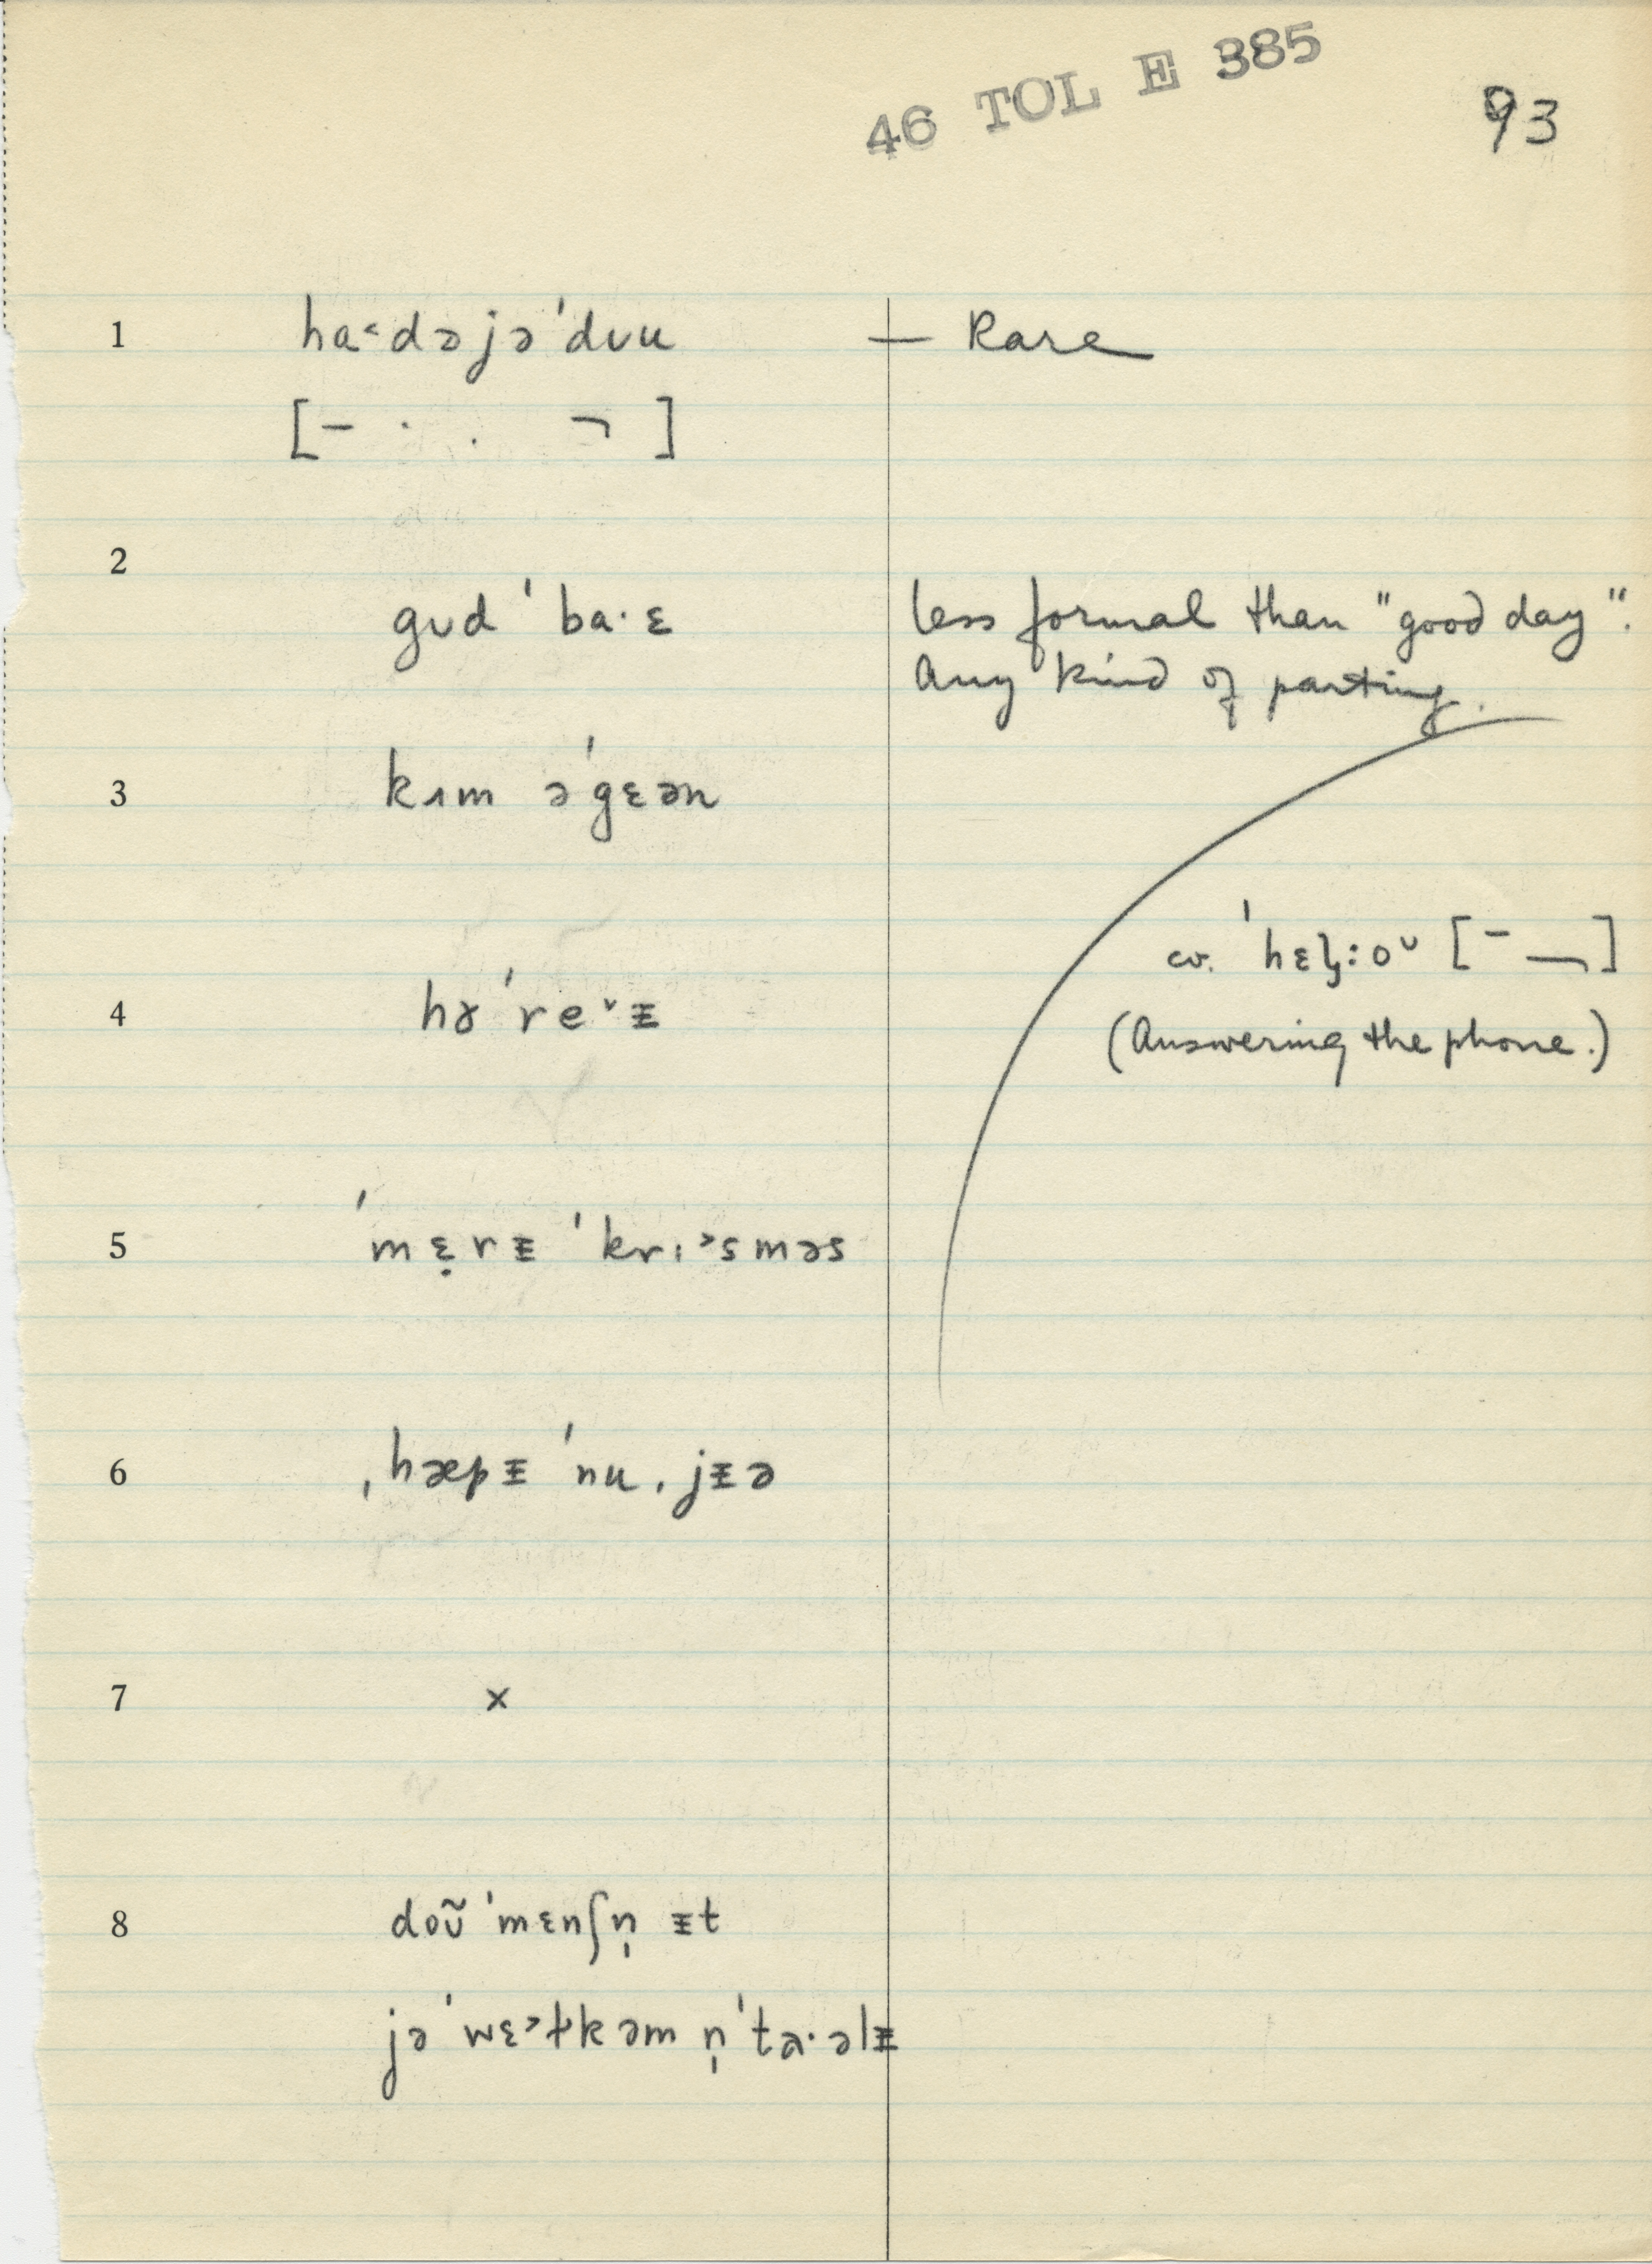 46 TOL E 385
93
1 ha˂dəjə'dʊu — Rare
[– · . ¬ ]
2
gʊd 'ba·ɛ less formal than "good day".
Any kind of parting.
3 kʌm ə'gɛən
cv. 'hɛɫ:oᵕ [¯ ¬]
4 hɤ're˅ᵻ
(Answering the phone.)
5 'mɛ̣rᵻ 'krɪ˃sməs
6 ˌhæpᵻ 'nuˌjᵻə
7 x
8 doʊ̃ 'mɛnʃn̩ ᵻt
jə 'wɛ˃ɫkəm n̩'ta·əlᵻ